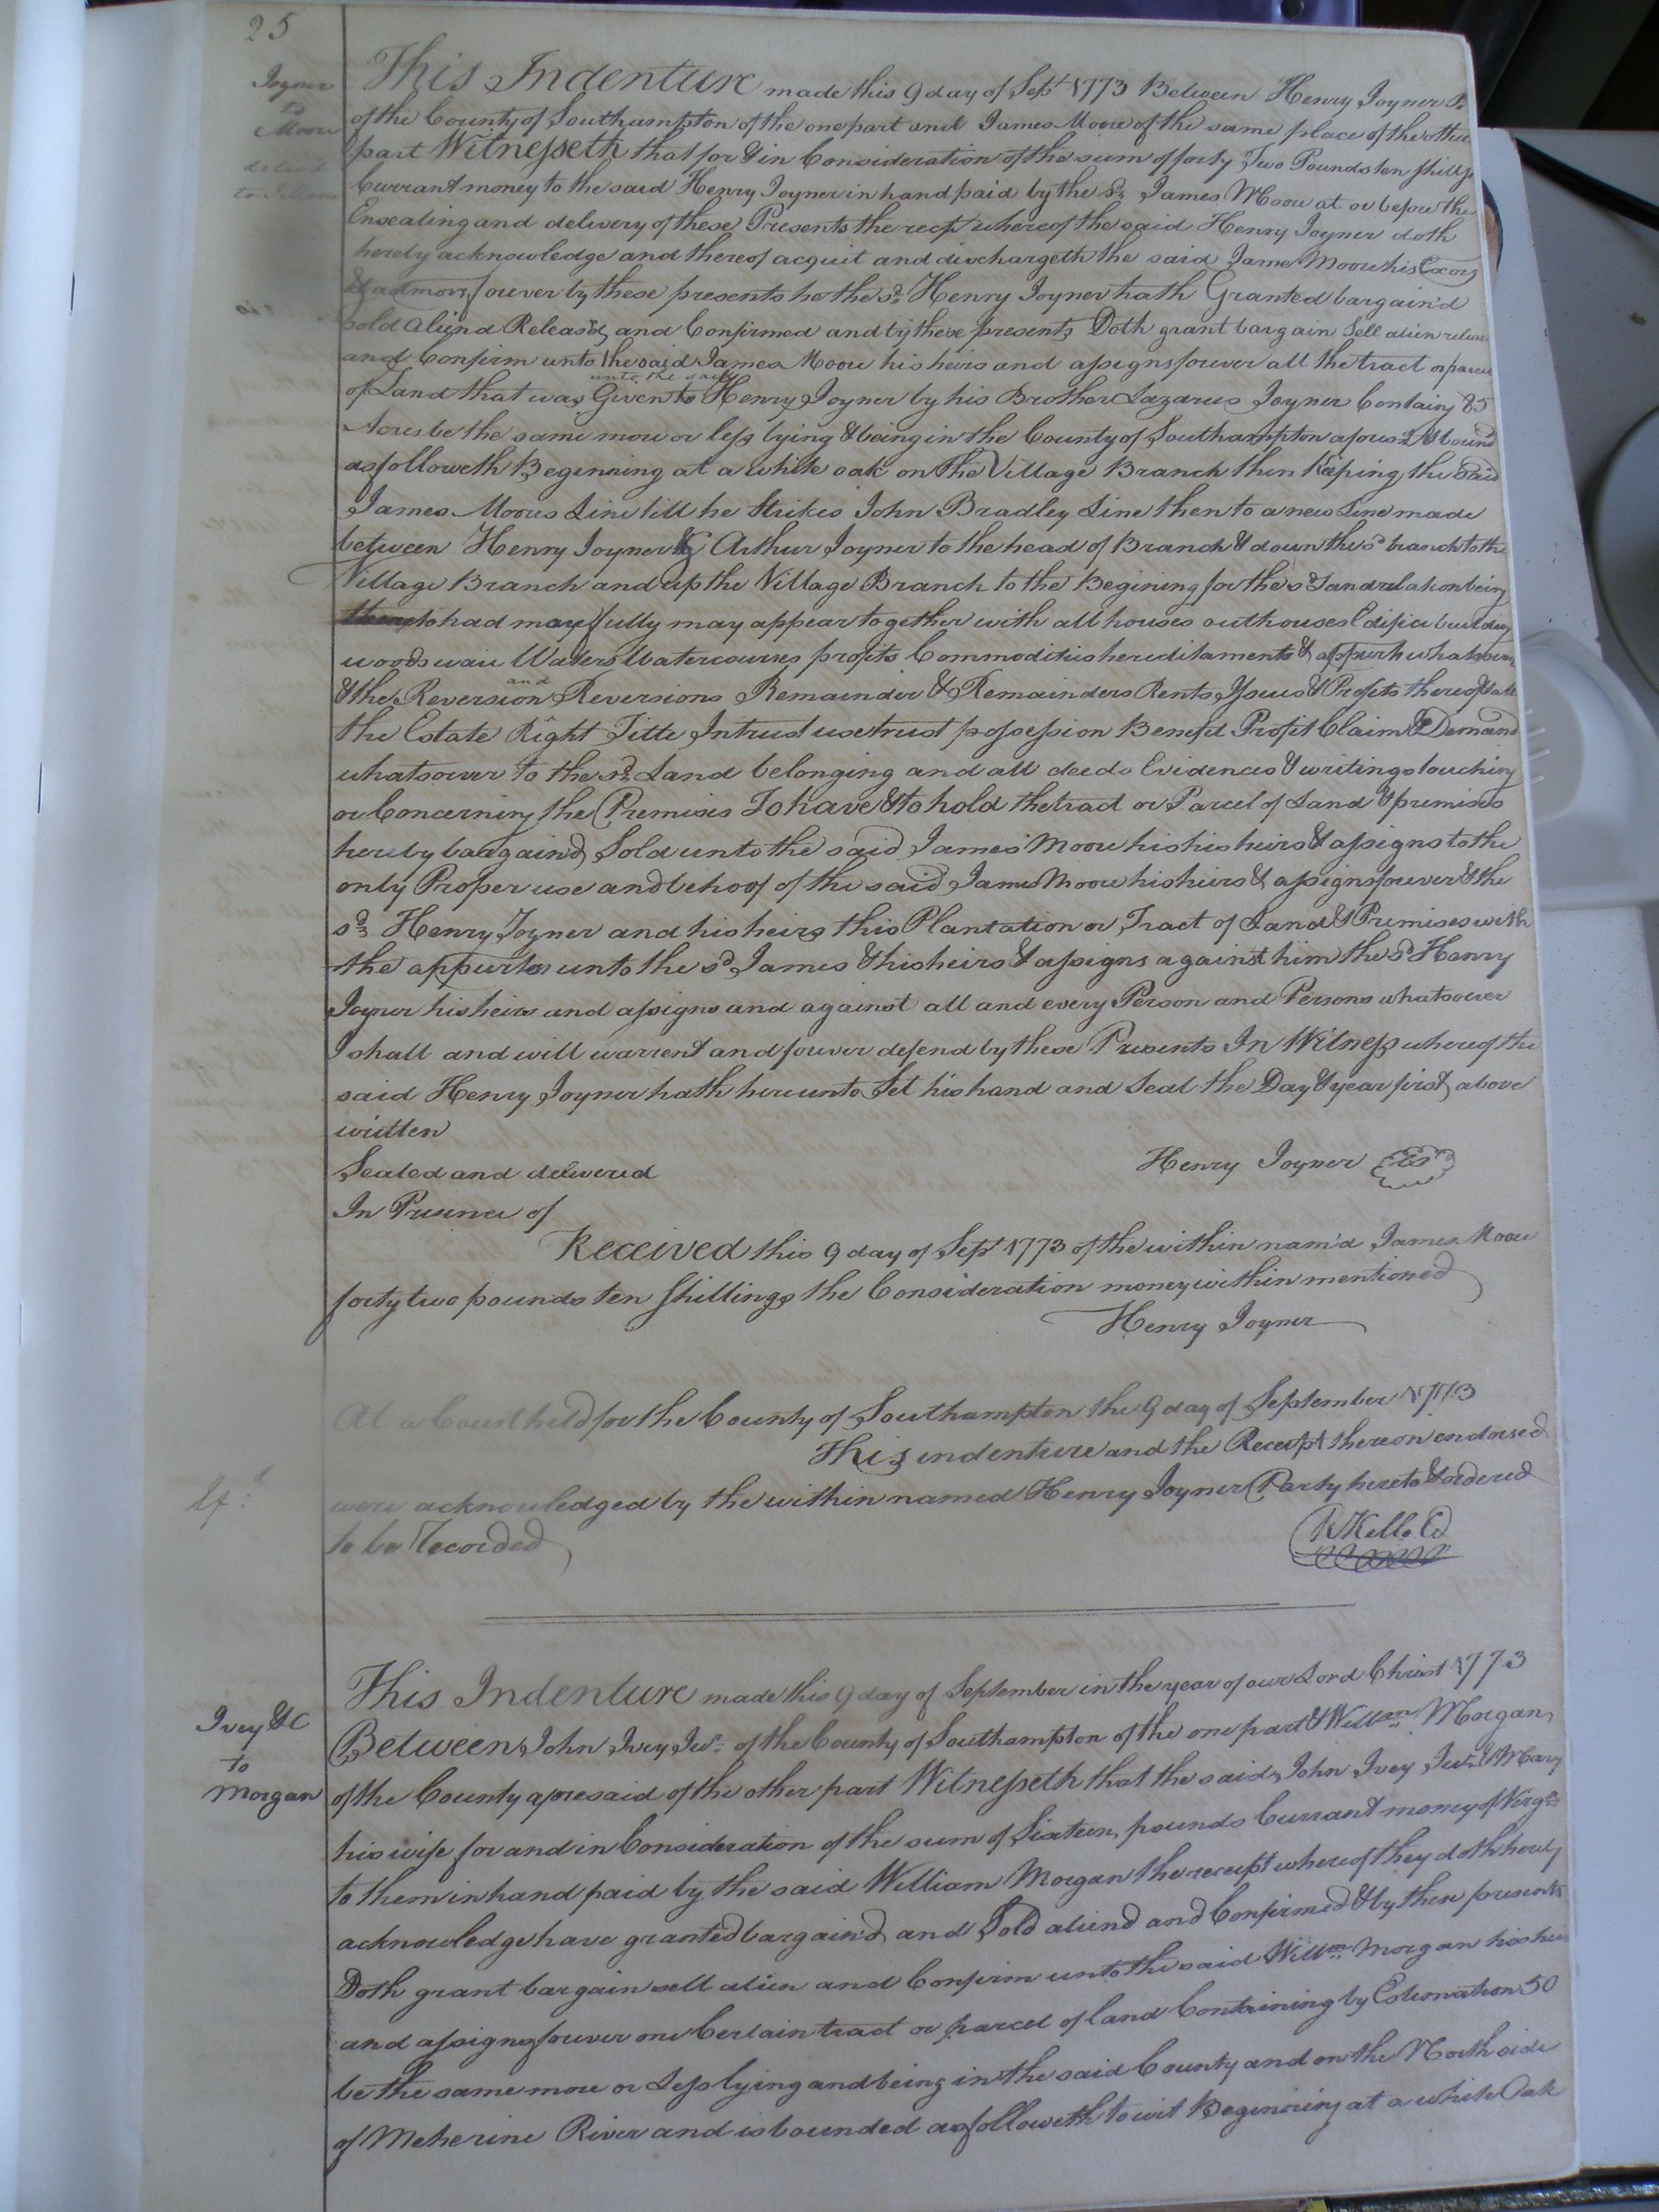 25
Joyner
to
Moore
This Indenture made this 9 day of Sept 1773 Between Henry Joyner
of the County of Southampton of the one part and James Moore of the same place of the other
part Witnesseth that for & in Consideration of the sum of forty Two Pounds ten shillgs
Currant money to the said Henry Joyner in hand paid by the sd James Moore at or before the
Ensealing and delivery of these Presents the recpt whereof the said Henry Joyner doth
hereby acknowledge and thereof acquit and dischargeth the said James Moore his Excors
& admors forever by these presents he the sd Henry Joyner hath Granted bargain'd
sold Aliend Releas'd and Confirmed and by these presents Doth grant bargain Sell alien release
and Confirm unto the said James Moore his heirs and assigns forever all the tract or parcel
unto the said
of Land that was Given to Henry Joyner by his Brother Lazarus Joyner Containg 85
Acres be the same more or less lying & being in the County of Southampton aforesd & bound
as followeth Beginning at a white oak on the Village Branch then Keeping the said
James Moores Line till he strikes John Bradley Line then to a new Line made
between Henry Joyner & Arthur Joyner to the head of Branch & down the sd branch to the
Village Branch and up the Village Branch to the Begining for the sd Land relation being
to had may fully may appear together with all houses outhouses Edifices buildings
woods Waters Watercourses profits Commodities hereditaments & appurts whatsoever
and
& the Reversion Reversions Remainder & Remainders Rents Yssues & Profits thereof & all
the Estate Right Title Intrust use trust possession Benefit Profit Claim & Demand
whatsoever to the sd Land belonging and all deeds Evidences & writings touching
or Concerning the Premises To have & to hold the tract or Parcel of Land & premises
hereby bargaind Sold unto the said James Moore his his heirs & assigns to the
only Proper use and behoof of the said James Moore his heirs & assigns forever & the
sd Henry Joyner and his heirs this Plantation or Tract of Land & Premises with
the appurts unto the sd James & his heirs & assigns against him the sd Henry
Joyner his heirs and assigns and against all and every Person and Persons whatsoever
I shall and will warrent and forever defend by these Presents In Witness whereof the
said Henry Joyner hath hereunto Set his hand and Seal the Day & year first above
written
Sealed and delivered Henry Joyner LS
In Presence of
Received this 9 day of Sept 1773 of the within nam'd James Moore
forty two pounds ten shillings the Consideration money within mentioned
Henry Joyner
At a Court held for the County of Southampton the 9 day of September 1773
This indenture and the Receipt thereon endorsed
were acknowledged by the within named Henry Joyner Party hereto & ordered
to be Recorded
R Kello
Ivey &C
to
Morgan
This Indenture made this 9 day of September in the year of our Lord Christ 1773
Between John Ivey Jur of the County of Southampton of the one part & Willm Morgan
of the County aforesaid of the other part Witnesseth that the said John Ivey Jur & Mary
his wife for and in Consideration of the sum of Sixteen pounds Currant money of Virga
to them in hand paid by the said William Morgan the receipt whereof they doth hereby
acknowledge have granted bargain'd and Sold aliend and Confirmed & by these presents
Doth grant bargain sell alien and Confirm unto the said Willm Morgan his heirs
and assigns forever one Certain tract or parcel of land Containing by Estimation 50
be the same more or Less lying and being in the said County and on the North side
of Meherine River and is bounded as followeth to wit Beginning at a white Oak